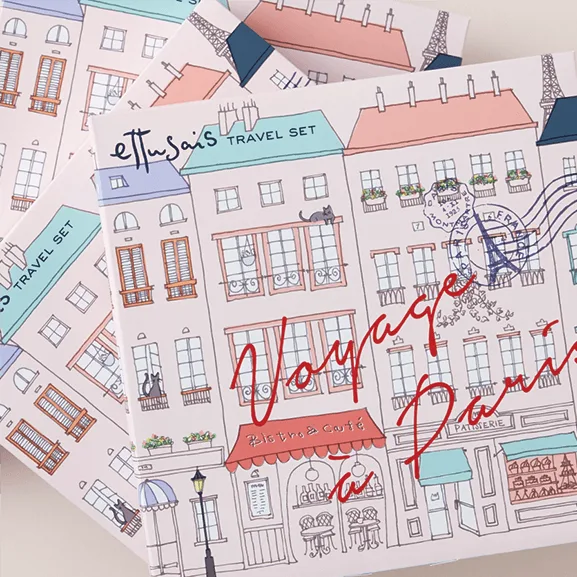 ettusais TRAVEL SET
7
MONTMARTRE
PARIS FRANCE
Voyage
à Paris
Bistro & Café
PATISSERIE
TRAVEL SET